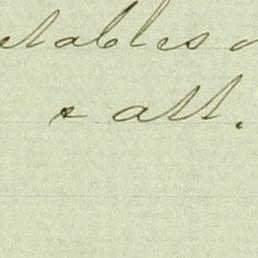 etables
& all.